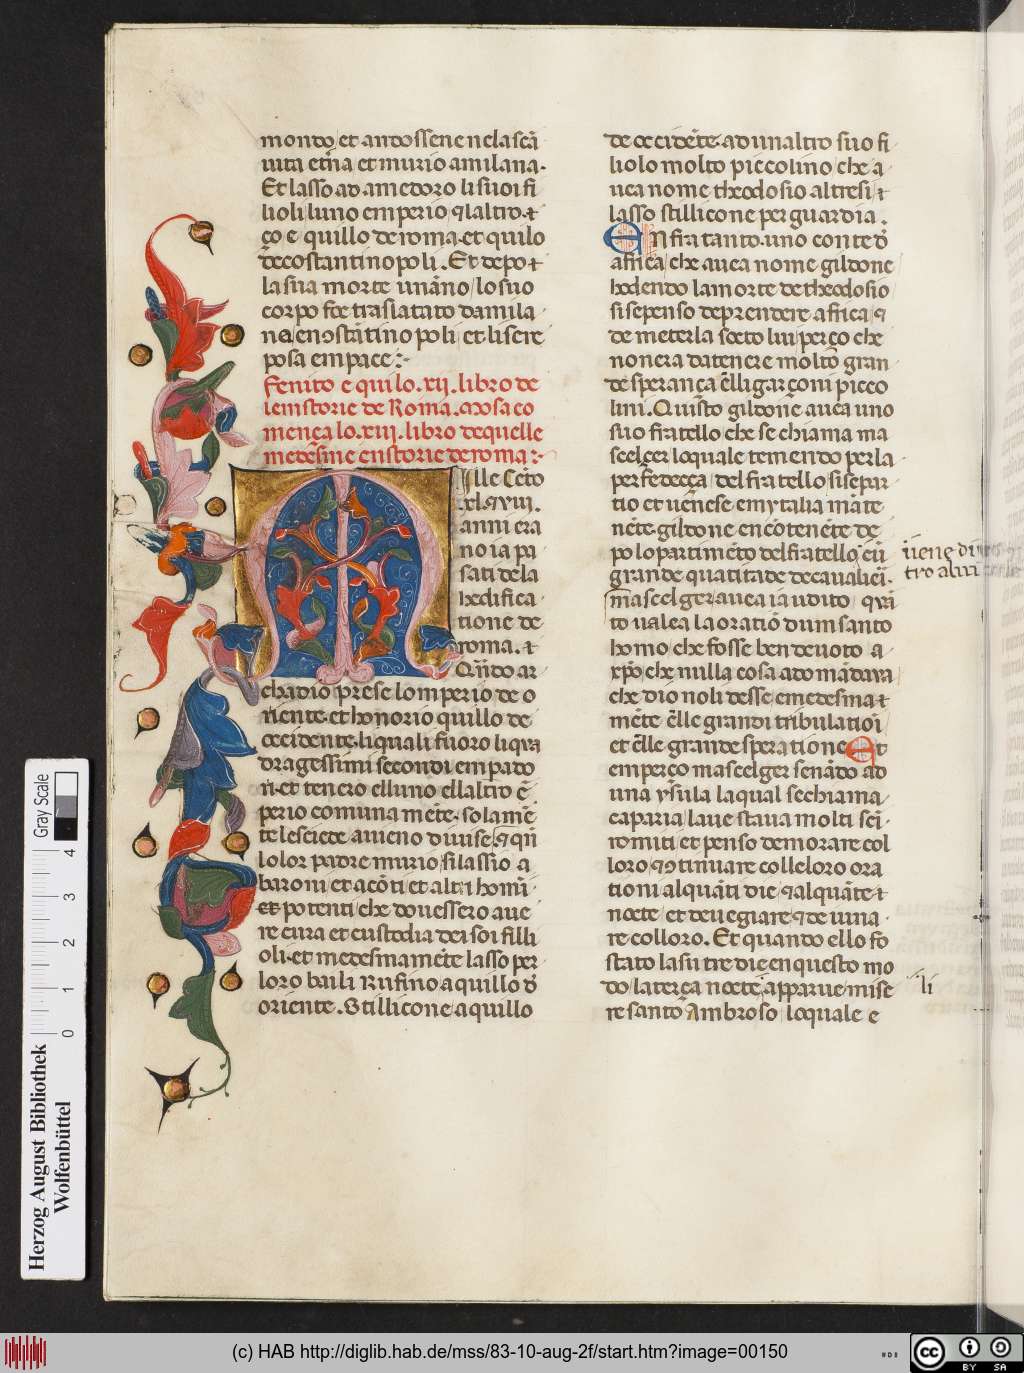 mondo et andossene nela scã
uita etĩna et murio a milana.
Et lasso ad amedoro li suoi fi
lioli luno emperio ql altro. τ
ço e quillo de roma. et quilo
de costantinopoli. Et depo τ
la sua morte un ãno lo suo
corpo foe traslatato da mila
na en ꝯstãtinopoli et li se re
posa em pace:·
Fenito e qui lo .xii. libro de
le instorie de Roma. Mo sa co
mença lo .xiii. libro de quelle
medesme enstorie de roma:·
Mille Cẽto
.xl. viii.
anni era
no ia pa
sati de la
hedifica
tione de
roma. τ
Qñdo ar
chadio prese lomperio de o
riente. et honorio quillo de
occidente. li quali fuoro li qua
dragessimi secondi empado
ri. et tenero elluno ellaltro ẽ
perio comuna mẽte. solamẽ
te le sciece aueno diuise. ꝯ qñ
lo lor padre murio si lassio a
baroni et a cõti et altri homĩ
et potenti che douessero aue
re cura et custodia dei soi filli
oli. et medesmamẽte lasso per
loro baili Rufino a quillo d̃
oriente. Stillicone a quillo
de occidẽte. ad un altro suo fi
liolo molto piccolino che a
uea nome theodosio altresi τ
lasso stillicone per guardia.
En fra tanto uno conte d̃
africa che auea nome gildone
hodendo la morte de theodosio
si se penso de prendere affrica ꝯ
de meterla socto lui perço che
non era da tenere molto gran
de sperança ẽlli garçoni picco
lini. Quisto gildone auea uno
suo fratello che se chiama ma
scelçer lo quale temendo per la
perfedecça del fratello si separ
tio et uẽnese em ytalia mãte
nẽte. gildone encõtenẽte de
po lo partimẽto del fratello eñ
grande quãtitade de caualieri.
mascelger auea ia udito quã
to ualea la oratiõ dum santo
homo che fosse ben deuoto a
xpõ che nulla cosa adomãdaua
che dio no li desse emedesma τ
mẽte ẽlle grandi tribulatiõi
et ẽlle grande speratione Et
emperço mascelger se nãdo ad
una ysula la qual se chiama
caparia laue staua molti sci
romiti et penso demorare col
loro ꝯ ꝯtinuare colle loro ora
tioni alquãti die ꝯ alquãte τ
nocte et deuegiare ꝯ de iuna
re colloro. Et quando ello fo
stato la su tre die en questo mo
do la terça nocte apparue mise
re santo Ambroso lo quale e
uene di
tro a lui
li
Herzog August Bibliothek
Wolfenbüttel
0 1 2 3 4
Gray Scale
(c) HAB http://diglib.hab.de/mss/83-10-aug-2f/start.htm?image=00150
cc BY SA